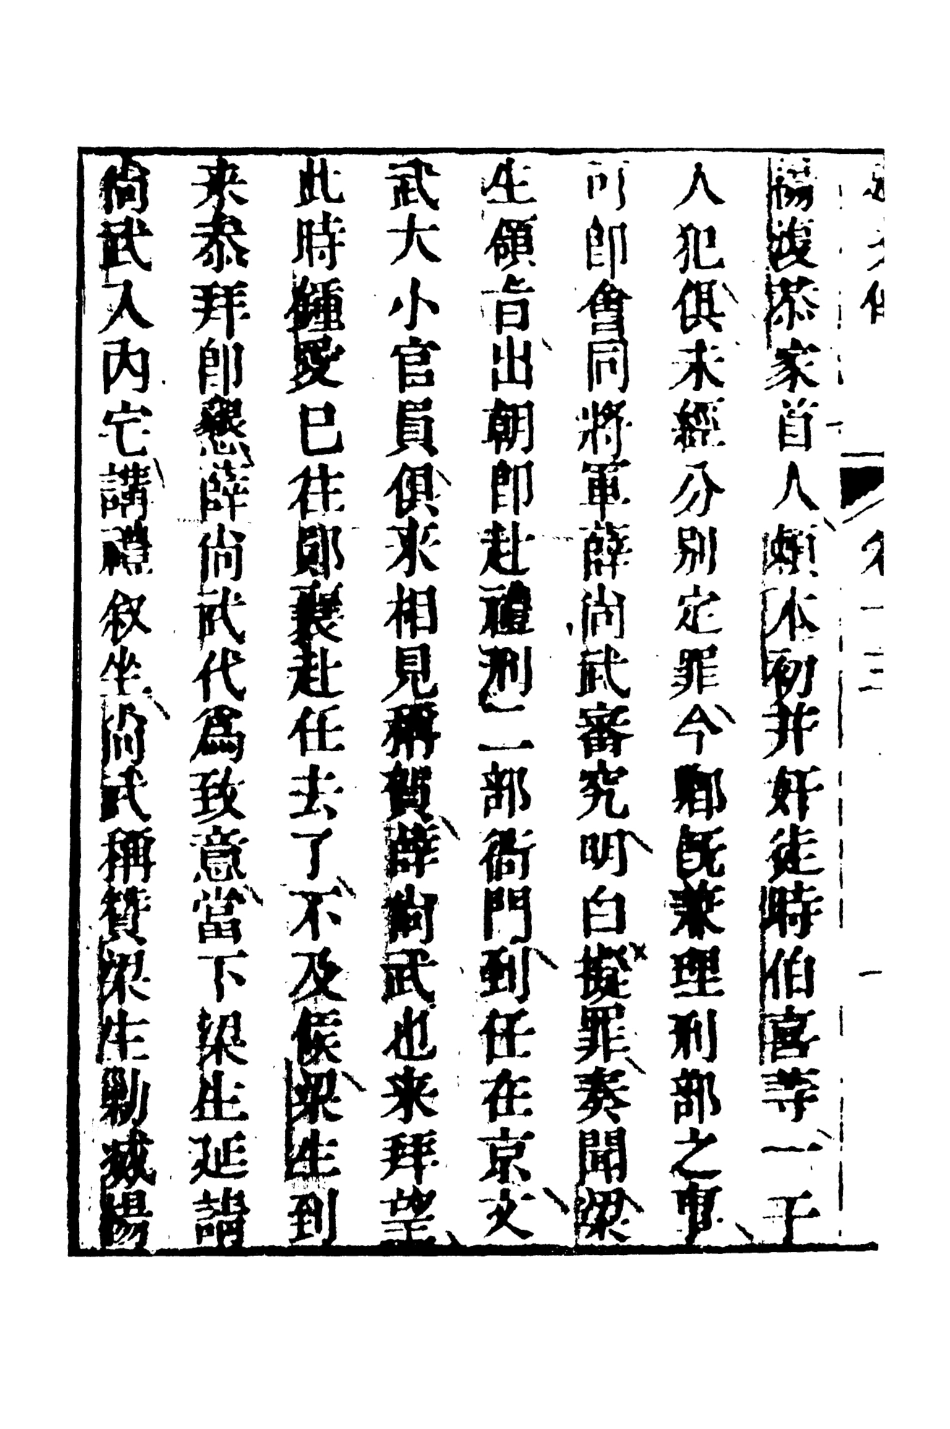 卷十三
一
楊復恭家首人賴本初并奸徒時伯喜等一干
人犯俱未經分別定罪今鄉既兼理刑部之事
可即會同將軍薛尚武審究明白擬罪奏聞梁
生領旨出朝即赴禮刑二部衙門到任在京文
武大小官員俱來相見稱賀薛尚武也来拜望
此時鍾愛巳往鄖襄赴任去了不及候梁生到
来恭拜即懇薛尚武代為致意當下梁生延請
尚武入內宅講禮叙坐尚武稱贊梁生勦滅楊